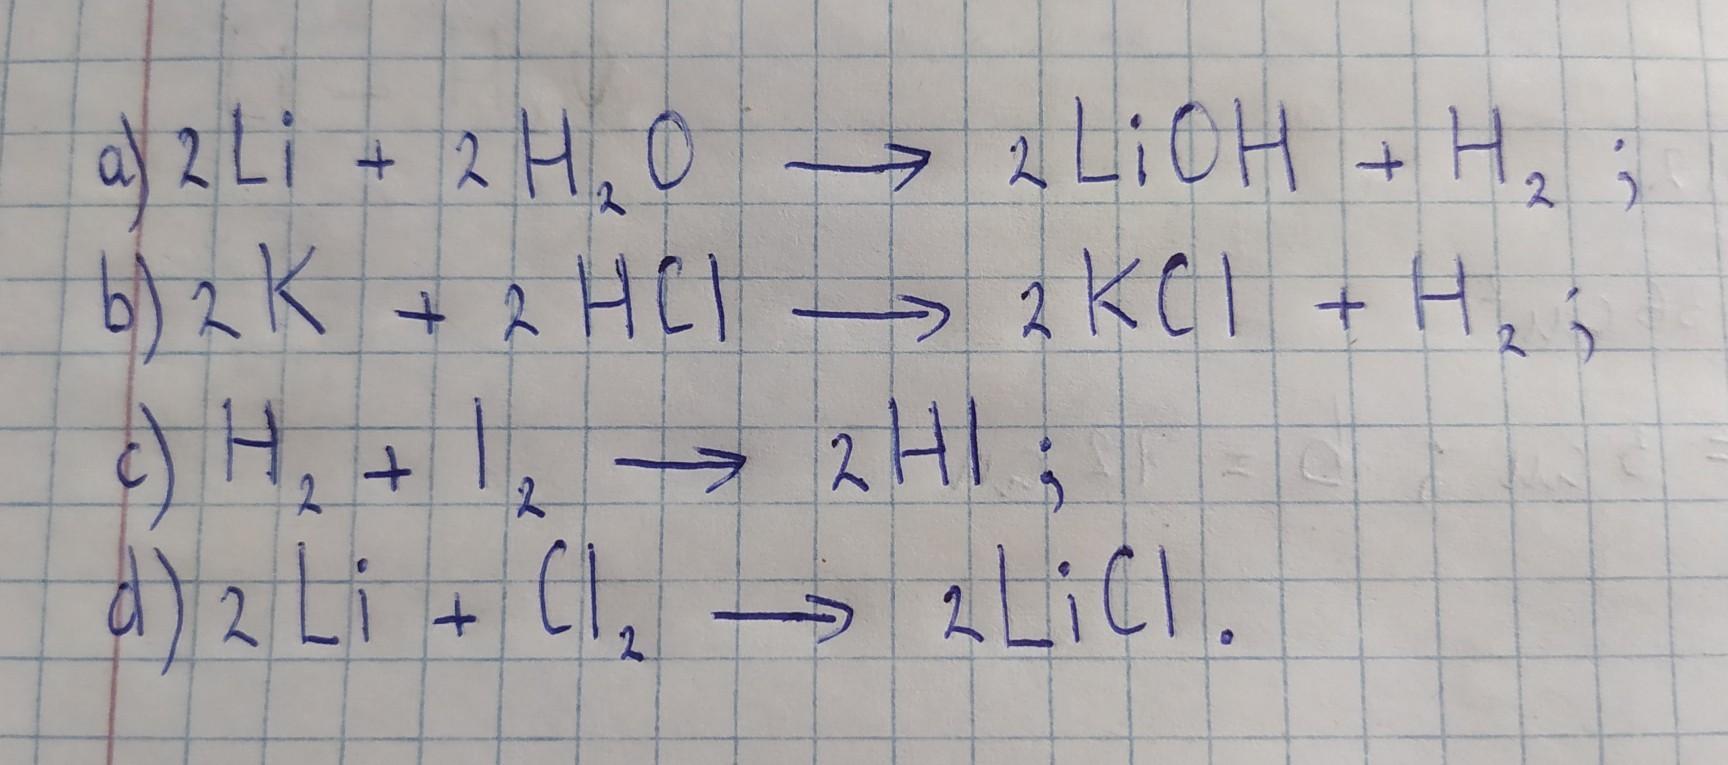 a) 2Li + 2H₂O → 2LiOH + H₂ ;
b) 2K + 2HCl → 2KCl + H₂ ;
c) H₂ + I₂ → 2HI ;
d) 2Li + Cl₂ → 2LiCl .